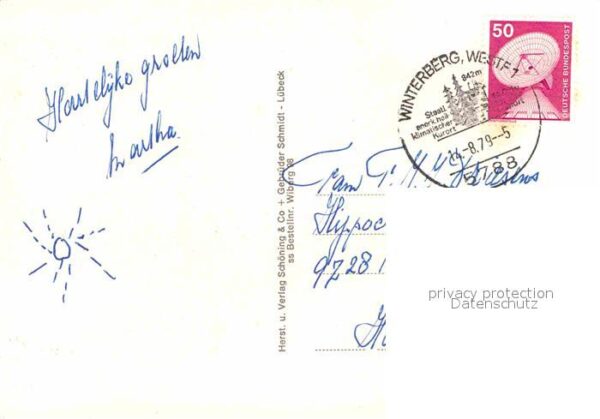 Hartelijke groeten
Martha.
Herst. u. Verlag Schöning & Co + Gebrüder Schmidt - Lübeck
ss Bestellnr. Wiberg 98
50
DEUTSCHE BUNDESPOST
WINTERBERG, WESTF 1
842m
Staatl
anerk. heil
klimatischer
Kurort
14.-8.79--5
5788
Fam
Hyppoc
9728
privacy protection
Datenschutz